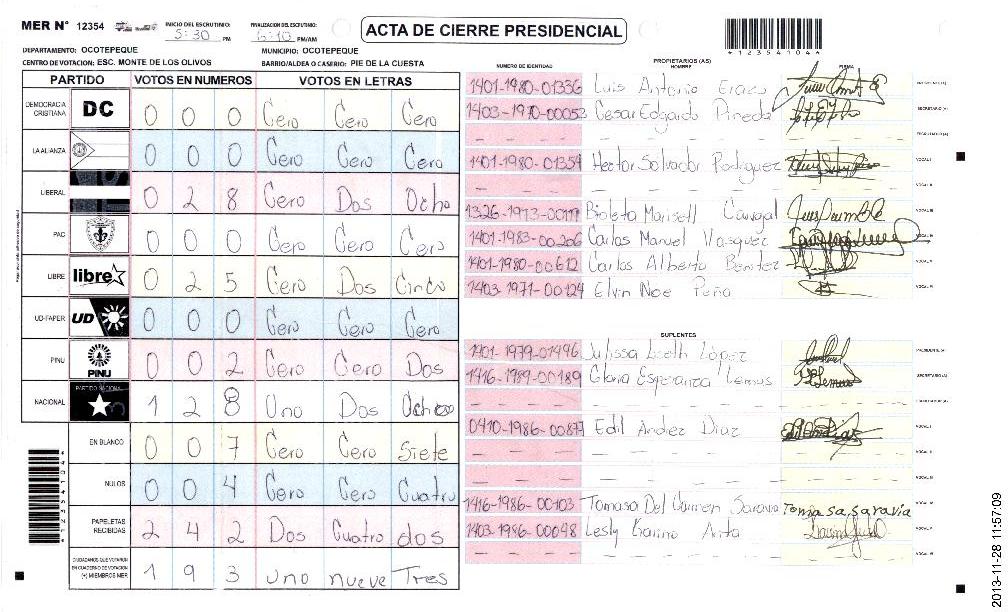 MER N° 12354
INICIO DEL ESCRUTINIO: 5:30 PM
FINALIZACION DEL ESCRUTINIO: 6:10 PM/AM
ACTA DE CIERRE PRESIDENCIAL
*123541044*
DEPARTAMENTO: OCOTEPEQUE
MUNICIPIO: OCOTEPEQUE
CENTRO DE VOTACION: ESC. MONTE DE LOS OLIVOS
BARRIO/ALDEA O CASERIO: PIE DE LA CUESTA
PARTIDO VOTOS EN NUMEROS VOTOS EN LETRAS
DEMOCRACIA CRISTIANA DC 0 0 0 Cero Cero Cero
LA ALIANZA 0 0 0 Cero Cero Cero
LIBERAL 0 2 8 Cero Dos Ocho
PAC 0 0 0 Cero Cero Cero
LIBRE libre 0 2 5 Cero Dos Cinco
UD-FAPER UD 0 0 0 Cero Cero Cero
PINU PINU 0 0 2 Cero Cero Dos
NACIONAL PARTIDO NACIONAL 1 2 8 Uno Dos Ocho
EN BLANCO 0 0 7 Cero Cero Siete
NULOS 0 0 4 Cero Cero Cuatro
PAPELETAS RECIBIDAS 2 4 2 Dos Cuatro dos
CIUDADANOS QUE VOTARON EN CUADERNO DE VOTACION (+) MIEMBROS MER 1 9 3 uno nueve Tres
PROPIETARIOS (AS)
NUMERO DE IDENTIDAD NOMBRE FIRMA
1401-1980-01336 Luis Antonio Erazo
1403-1970-00053 Cesar Edgardo Pineda SECRETARIO (A)
ESCRUTADOR (A)
1401-1980-01354 Hector Salvador Rodriguez VOCAL I
VOCAL II
1326-1973-00119 Bioleta Marisell Carvajal VOCAL III
1401-1983-00206 Carlos Manuel Vasquez VOCAL IV
1401-1980-00612 Carlos Alberto Benitez VOCAL V
1403-1971-00124 Elvin Noe Peña VOCAL VI
SUPLENTES
1401-1979-01496 Julissa Liseth López PRESIDENTE (A)
1416-1989-00189 Gloria Esperanza Lemus SECRETARIO (A)
ESCRUTADOR (A)
0410-1986-00877 Edil Andiez Diaz VOCAL I
VOCAL II
VOCAL III
1416-1986-00103 Tomasa Del Carmen Saravia Tomasa saravia VOCAL IV
1403-1986-00048 Lesly Karina Arita VOCAL V
VOCAL VI
2013-11-28 11:57:09